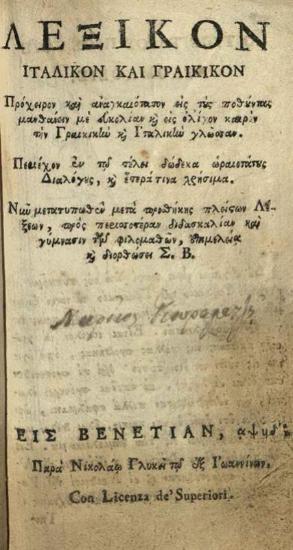 ΛΕΞΙΚΟΝ
ΙΤΑΛΙΚΟΝ ΚΑΙ ΓΡΑΙΚΙΚΟΝ
Πρόχειρον καὶ ἀναγκαιότατον εἰς τὰς ποθοῦντας
μανθάνειν μὲ εὐκολίαν κ̀ εἰς ὀλίγον καιρὸν
τὴν Γραικικὴν κ̀ Ἰταλικὴν γλῶσσαν.
Περιέχον ἐν τῷ τέλει δώδεκα ὡραιοτάτους
Διαλόγους, κ̀ ἕτερά τινα χρήσιμα.
Νῦν μετατυπωθὲν μετὰ προσθήκης πλείςων Λέ-
ξεων, πρὸς περισσοτέραν διδασκαλίαν καὶ
γυμνασιν τῶν φιλομαθῶν, ἐπιμελείᾳ
κ̀ διορθώσει Σ. Β.
ΕΙΣ ΒΕΝΕΤΙΑΝ,
Παρὰ Νικολάῳ Γλυκεῖ τῷ ἐξ Ἰωαννίνων.
Con Licenza de' Superiori.